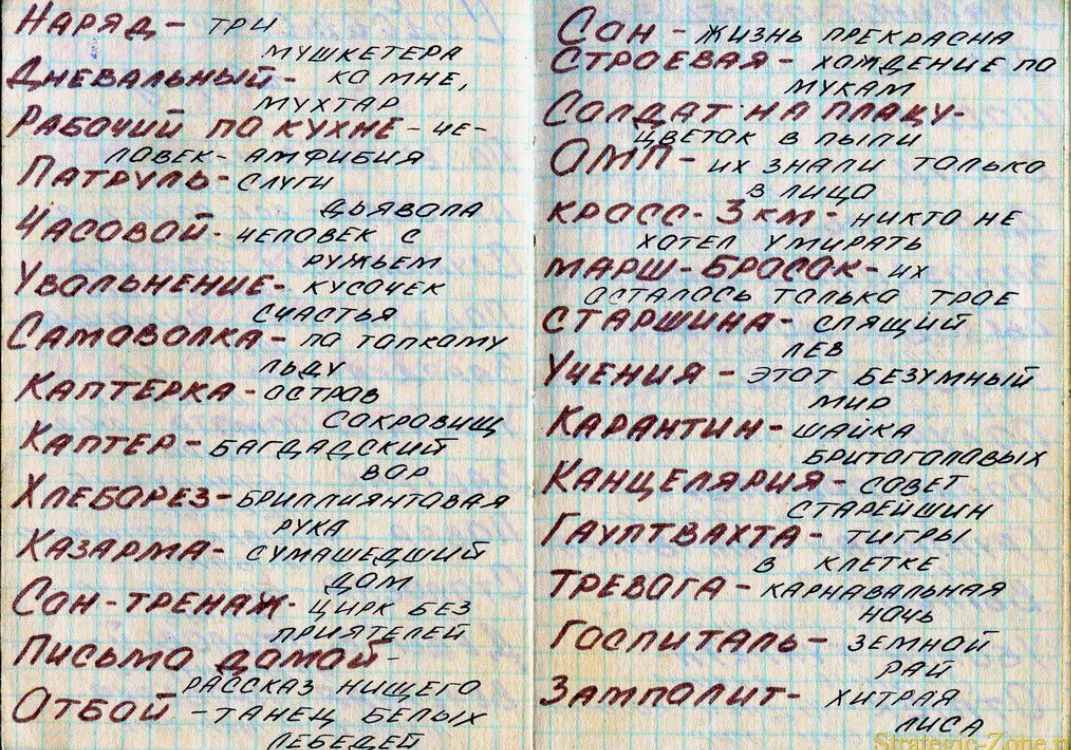 Наряд - три
мушкетера
Дневальный - ко мне,
мухтар
Рабочий по кухне - че-
ловек - амфибия
Патруль - слуги
дьявола
Часовой - человек с
ружьем
Увольнение - кусочек
счастья
Самоволка - по тонкому
льду
Каптерка - остров
сокровищ
Каптер - багдадский
вор
Хлеборез - бриллиянтовая
рука
Казарма - сумашедший
дом
Сон-тренаж - цирк без
приятелей
Письмо домой -
рассказ нищего
Отбой - танец белых
лебедей
Сон - жизнь прекрасна
Строевая - хождение по
мукам
Солдат на плацу -
цветок в пыли
ОМП - их знали только
в лицо
кросс - 3 км - никто не
хотел умирать
марш-бросок - их
осталось только трое
Старшина - спящий
лев
Учения - этот безумный
мир
Карантин - шайка
бритоголовых
Канцелярия - совет
старейшин
Гауптвахта - тигры
в клетке
Тревога - карнавальная
ночь
Госпиталь - земной
рай
Замполит - хитрая
лиса